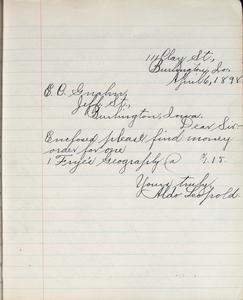 111 Clay St.,
Burlington, Ia.
April 6, 1898
E. O. 
Jeff. St.,
Burlington, Iowa.
Dear Sir:-
Enclosed please find money
order for one
1 Frye's Geography @ 1.15
Yours truly
Aldo Leopold.